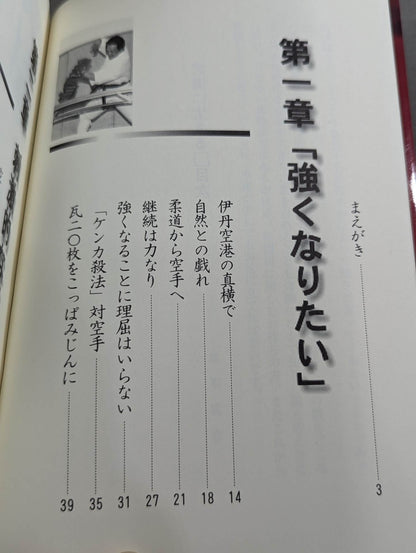 まえがき 3
第一章「強くなりたい」
伊丹空港の真横で 14
自然との戯れ 18
柔道から空手へ 21
継続は力なり 27
強くなることに理屈はいらない 31
「ケンカ殺法」対空手 35
瓦二〇枚をこっぱみじんに 39